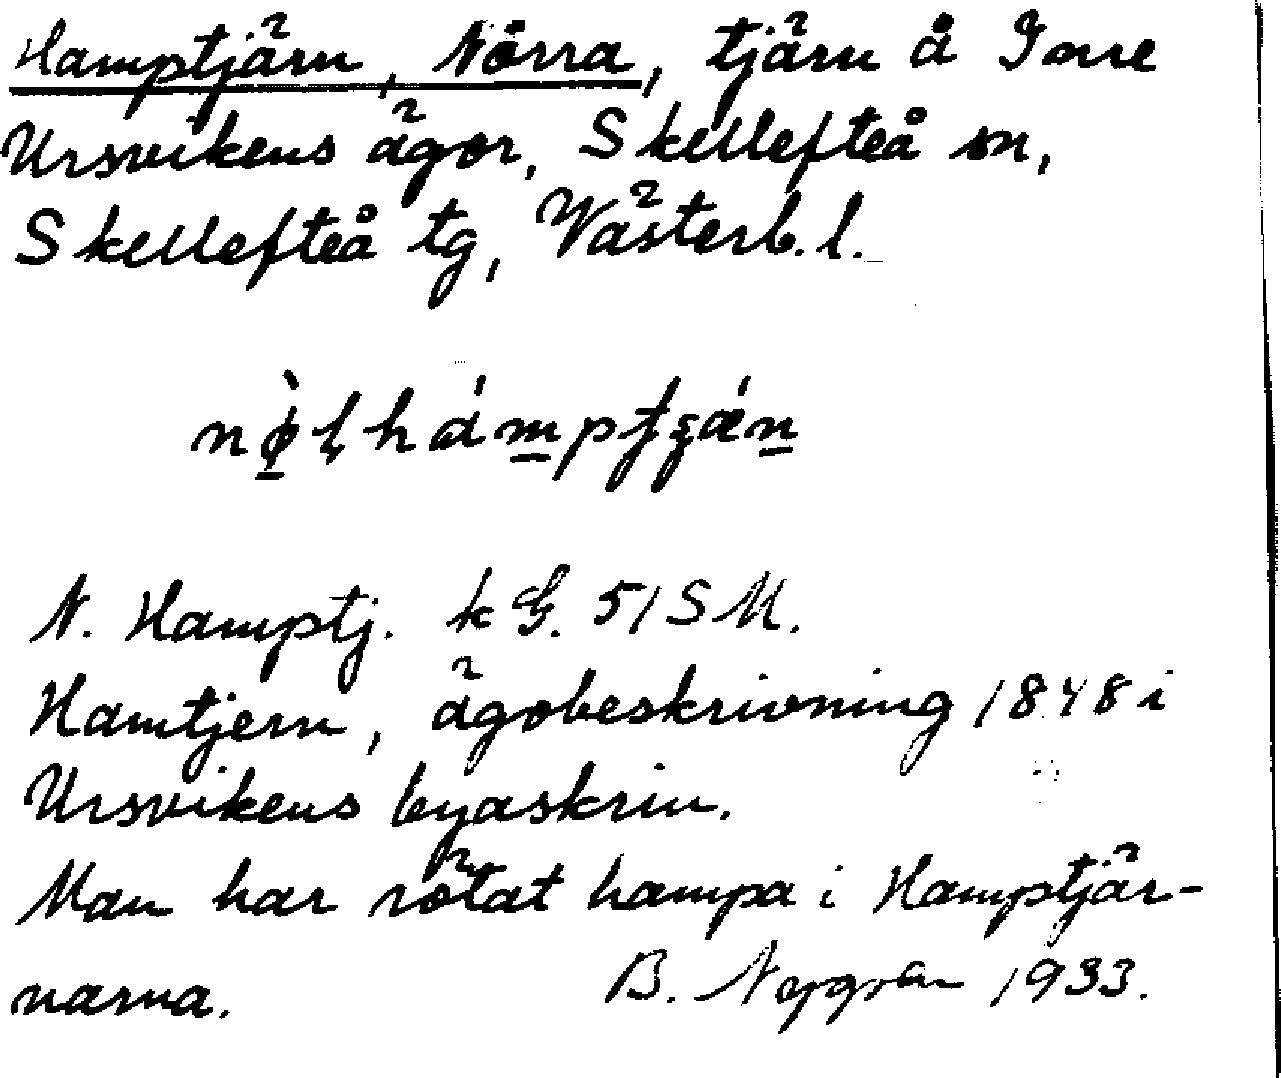 Hamptjärn, Norra, tjärn å Inre
Ursvikens ägor, Skellefteå sn,
Skellefteå tg, Västerb. l.
N. Hamptj. k G. 51 S M.
Hamtjern, ägobeskrivning 1848 i
Ursvikens byaskrin.
Man har rötat hampa i Hamptjär-
narna.
B. 1933.